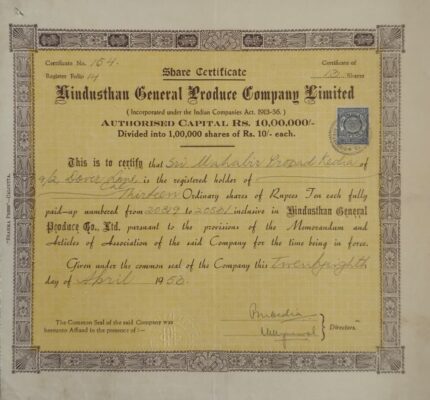 Certificate No. 154.
Certificate of
Register Folio 14
Share Certificate
13 Shares
Hindusthan General Produce Company Limited
( Incorporated under the Indian Companies Act, 1913-36. )
AUTHORISED CAPITAL RS. 10,00,000/-
Divided into 1,00,000 shares of Rs. 10/- each.
This is to certify that Sri Mahabir Prosad Kedia of
is the registered holder of
Thirteen Ordinary shares of Rupees Ten each fully
paid-up numbered from to inclusive in Hindusthan General
Produce Co., Ltd. pursuant to the provisions of the Memorandum and
Articles of Association of the said Company for the time being in force.
Given under the common seal of the Company this Twentyeighth
day of April 1950.
The Common Seal of the said Company was
hereunto Affixed in the presence of :—
Directors.